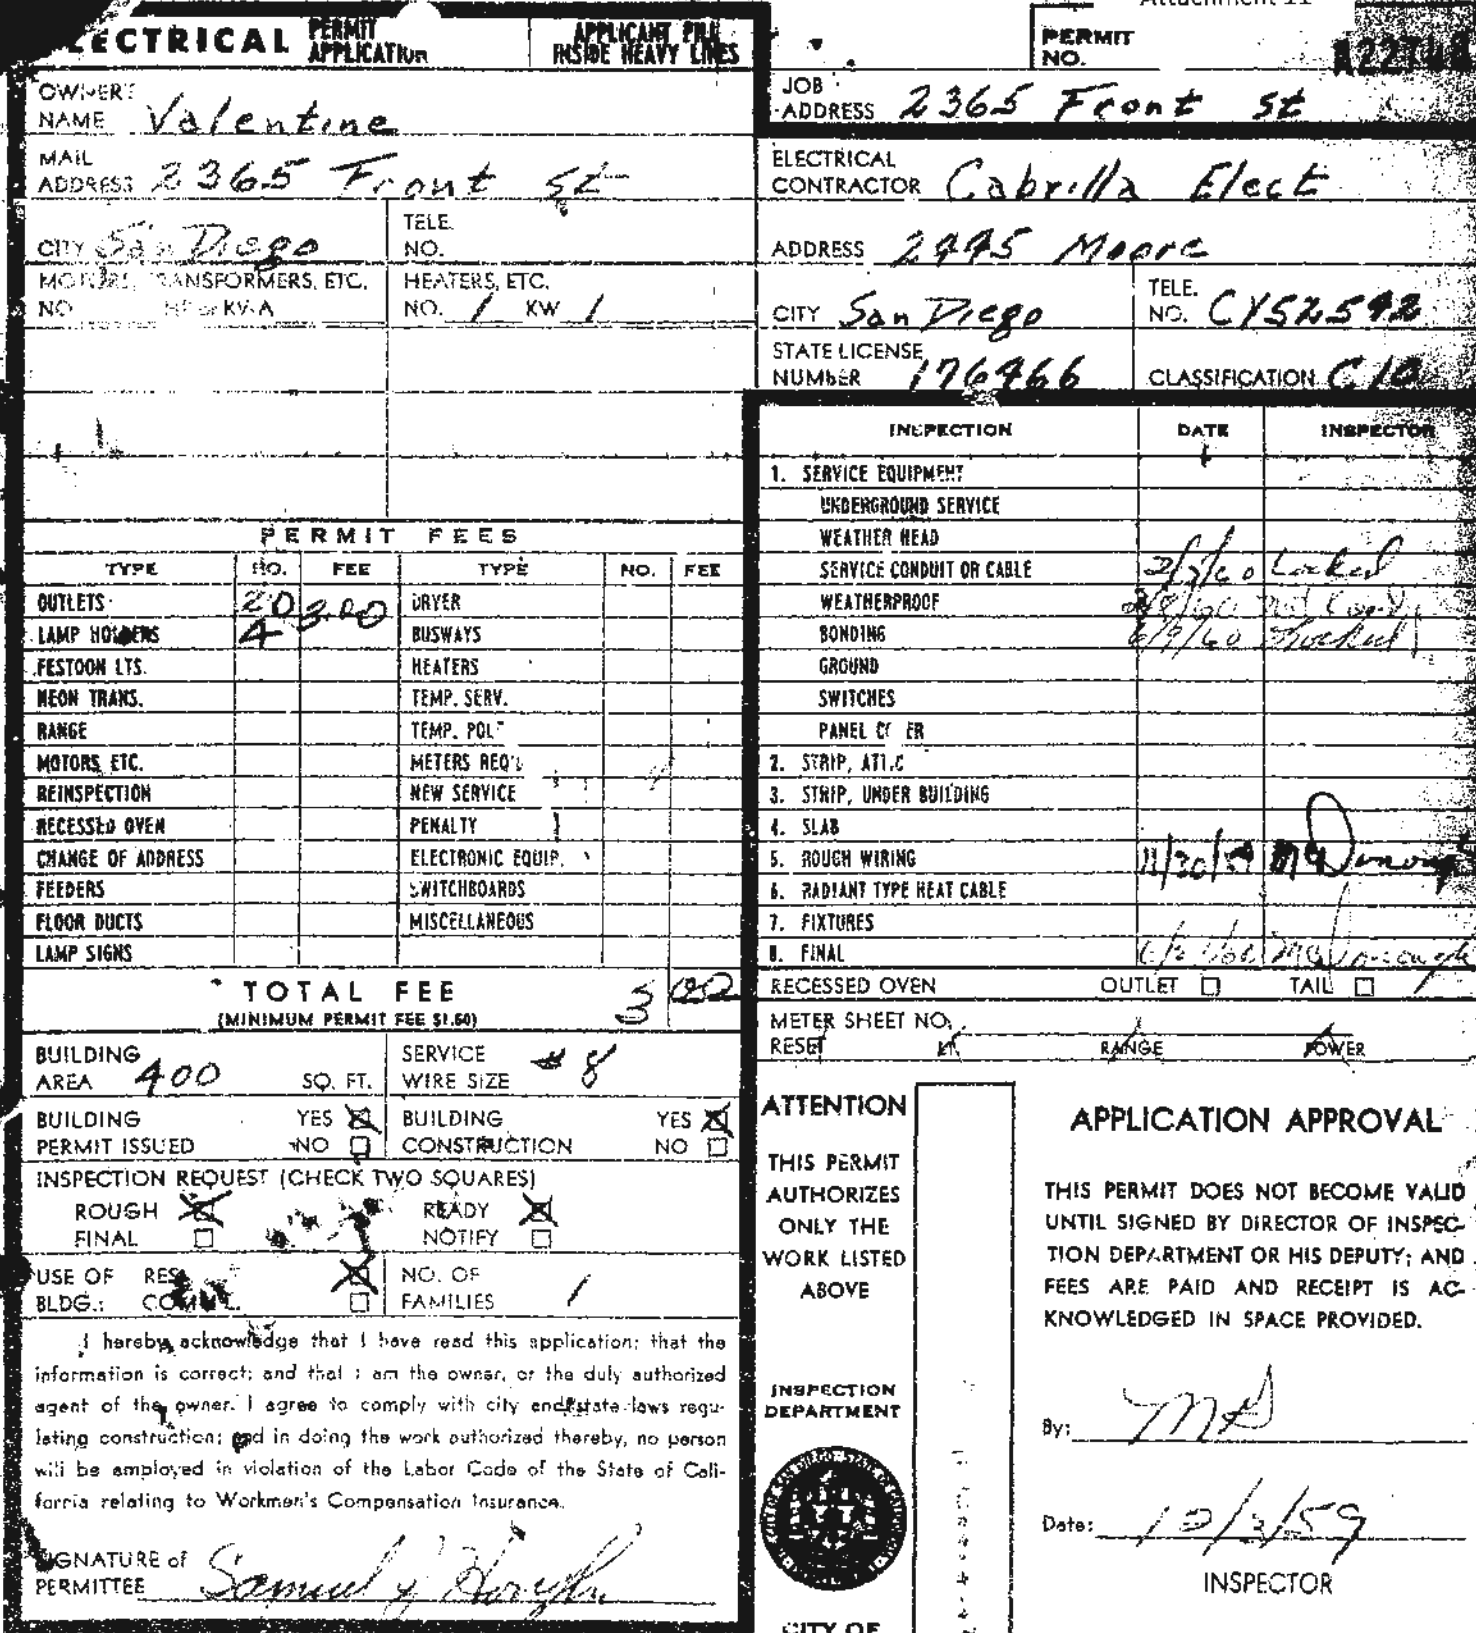 Attachment 11
ELECTRICAL PERMIT APPLICATION
APPLICANT FILL INSIDE HEAVY LINES
PERMIT NO.
OWNER'S NAME Valentine
MAIL ADDRESS 2365 Front St
CITY San Diego TELE. NO.
MOTORS, TRANSFORMERS, ETC. HEATERS, ETC.
NO. HP or KVA NO. 1 KW 1
JOB ADDRESS 2365 Front St
ELECTRICAL CONTRACTOR Cabrilla Elect
ADDRESS 2445 Moore
CITY San Diego TELE. NO. CY52592
STATE LICENSE NUMBER 176466 CLASSIFICATION C10
PERMIT FEES
TYPE NO. FEE TYPE NO. FEE
OUTLETS 20 3.00 DRYER
LAMP HOLDERS 4 BUSWAYS
FESTOON LTS. HEATERS
NEON TRANS. TEMP. SERV.
RANGE TEMP. POL
MOTORS, ETC. METERS REQ'D
REINSPECTION NEW SERVICE
RECESSED OVEN PENALTY
CHANGE OF ADDRESS ELECTRONIC EQUIP.
FEEDERS SWITCHBOARDS
FLOOR DUCTS MISCELLANEOUS
LAMP SIGNS
TOTAL FEE 3 00
(MINIMUM PERMIT FEE $1.60)
BUILDING AREA 400 SQ. FT. SERVICE WIRE SIZE # 8
BUILDING PERMIT ISSUED YES NO BUILDING CONSTRUCTION YES NO
INSPECTION REQUEST (CHECK TWO SQUARES)
ROUGH READY
FINAL NOTIFY
USE OF BLDG.: RES. COMM'L. NO. OF FAMILIES 1
I hereby acknowledge that I have read this application; that the
information is correct; and that I am the owner, or the duly authorized
agent of the owner. I agree to comply with city and state laws regu-
lating construction; and in doing the work authorized thereby, no person
will be employed in violation of the Labor Code of the State of Cali-
fornia relating to Workmen's Compensation Insurance.
SIGNATURE of PERMITTEE Samuel
INSPECTION DATE INSPECTOR
1. SERVICE EQUIPMENT
UNDERGROUND SERVICE
WEATHER HEAD
SERVICE CONDUIT OR CABLE Locked
WEATHERPROOF
BONDING
GROUND
SWITCHES
PANEL C ER
2. STRIP, ATTIC
3. STRIP, UNDER BUILDING
4. SLAB
5. ROUGH WIRING 11/30/59 McDonough
6. RADIANT TYPE HEAT CABLE
7. FIXTURES
8. FINAL McDonough
RECESSED OVEN OUTLET TAIL
METER SHEET NO.
RESET LT. RANGE POWER
ATTENTION
THIS PERMIT
AUTHORIZES
ONLY THE
WORK LISTED
ABOVE
INSPECTION
DEPARTMENT
CITY OF
APPLICATION APPROVAL
THIS PERMIT DOES NOT BECOME VALID
UNTIL SIGNED BY DIRECTOR OF INSPEC-
TION DEPARTMENT OR HIS DEPUTY; AND
FEES ARE PAID AND RECEIPT IS AC-
KNOWLEDGED IN SPACE PROVIDED.
By:
Date:
INSPECTOR